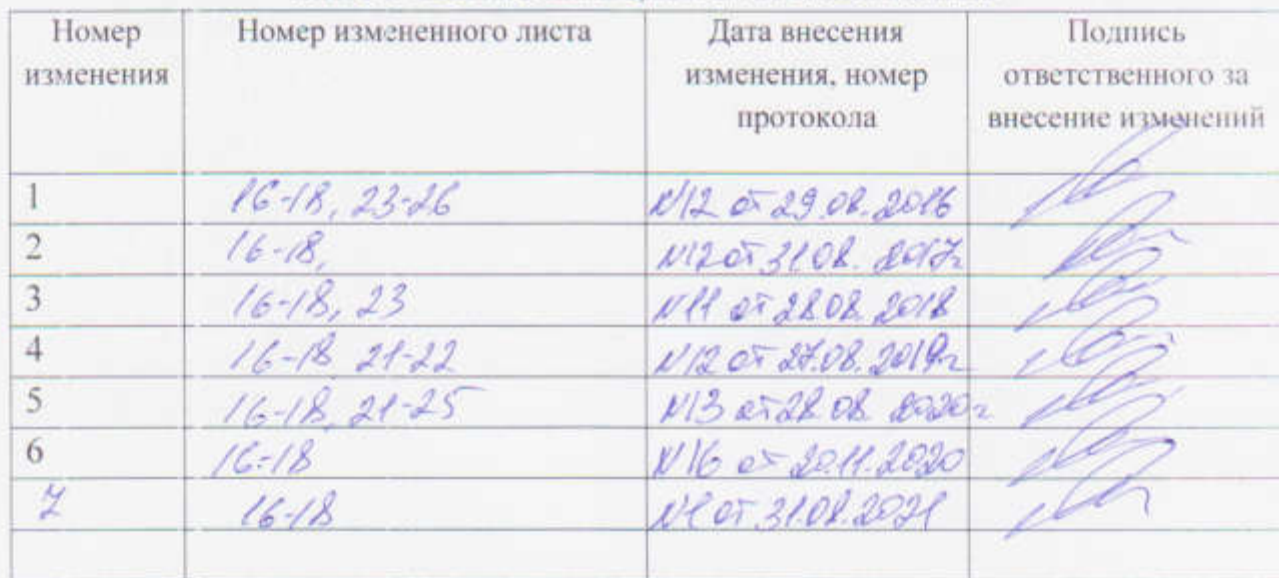 Номер изменения Номер измененного листа Дата внесения изменения, номер протокола Подпись ответственного за внесение изменений
1 16-18, 23-26 №12 от 29.08.2016
2 16-18, №12 от 31.08.2017г
3 16-18, 23 №11 от 28.08.2018
4 16-18, 21-22 №12 от 27.08.2019г
5 16-18, 21-25 №13 от 28.08.2020г
6 16-18 №16 от 20.11.2020
7 16-18 №1 от 31.08.2021